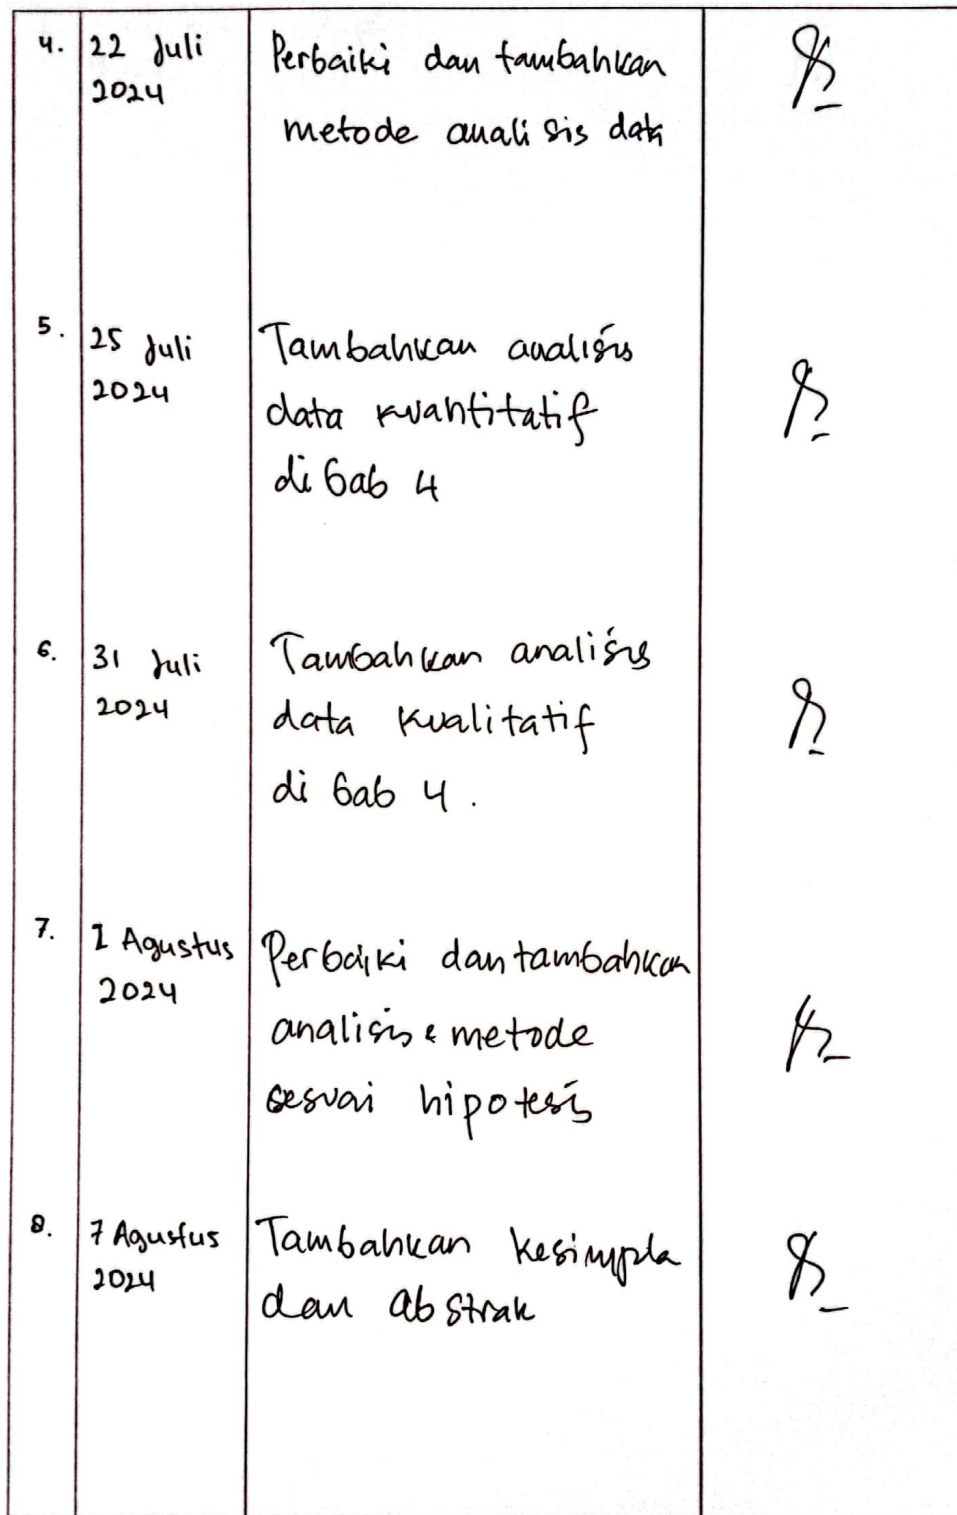 4. 22 Juli Perbaiki dan tambahkan
2024 metode analisis data
5. 25 Juli Tambahkan analisis
2024 data kuantitatif
di bab 4
6. 31 Juli Tambahkan analisis
2024 data kualitatif
di bab 4.
7. 1 Agustus Perbaiki dan tambahkan
2024 analisis & metode
sesuai hipotesis
8. 7 Agustus Tambahkan kesimpula
2024 dan abstrak